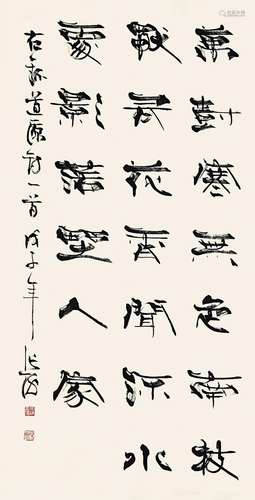 萬樹寒無色南枝
獨有花香聞流水
處影落野人家
右錄道源詩一首 戊子年 張海